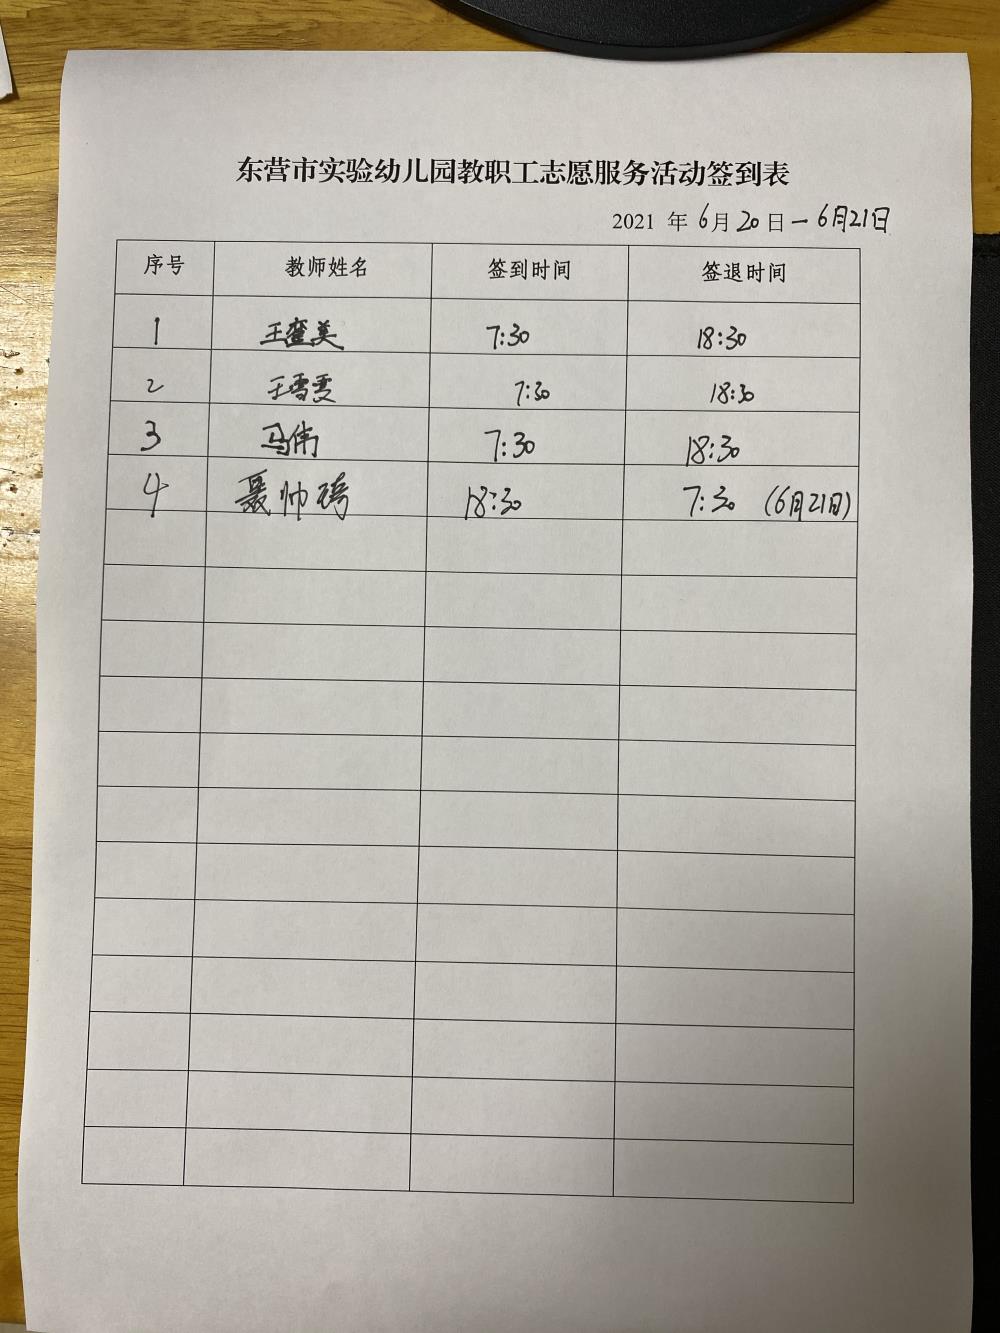 东营市实验幼儿园教职工志愿服务活动签到表
2021 年 6月 20 日 — 6月21日
序号 教师姓名 签到时间 签退时间
1 7:30 18:30
2 王雪雯 7:30 18:30
3 马伟 7:30 18:30
4 聂帅琦 18:30 7:30 (6月21日)